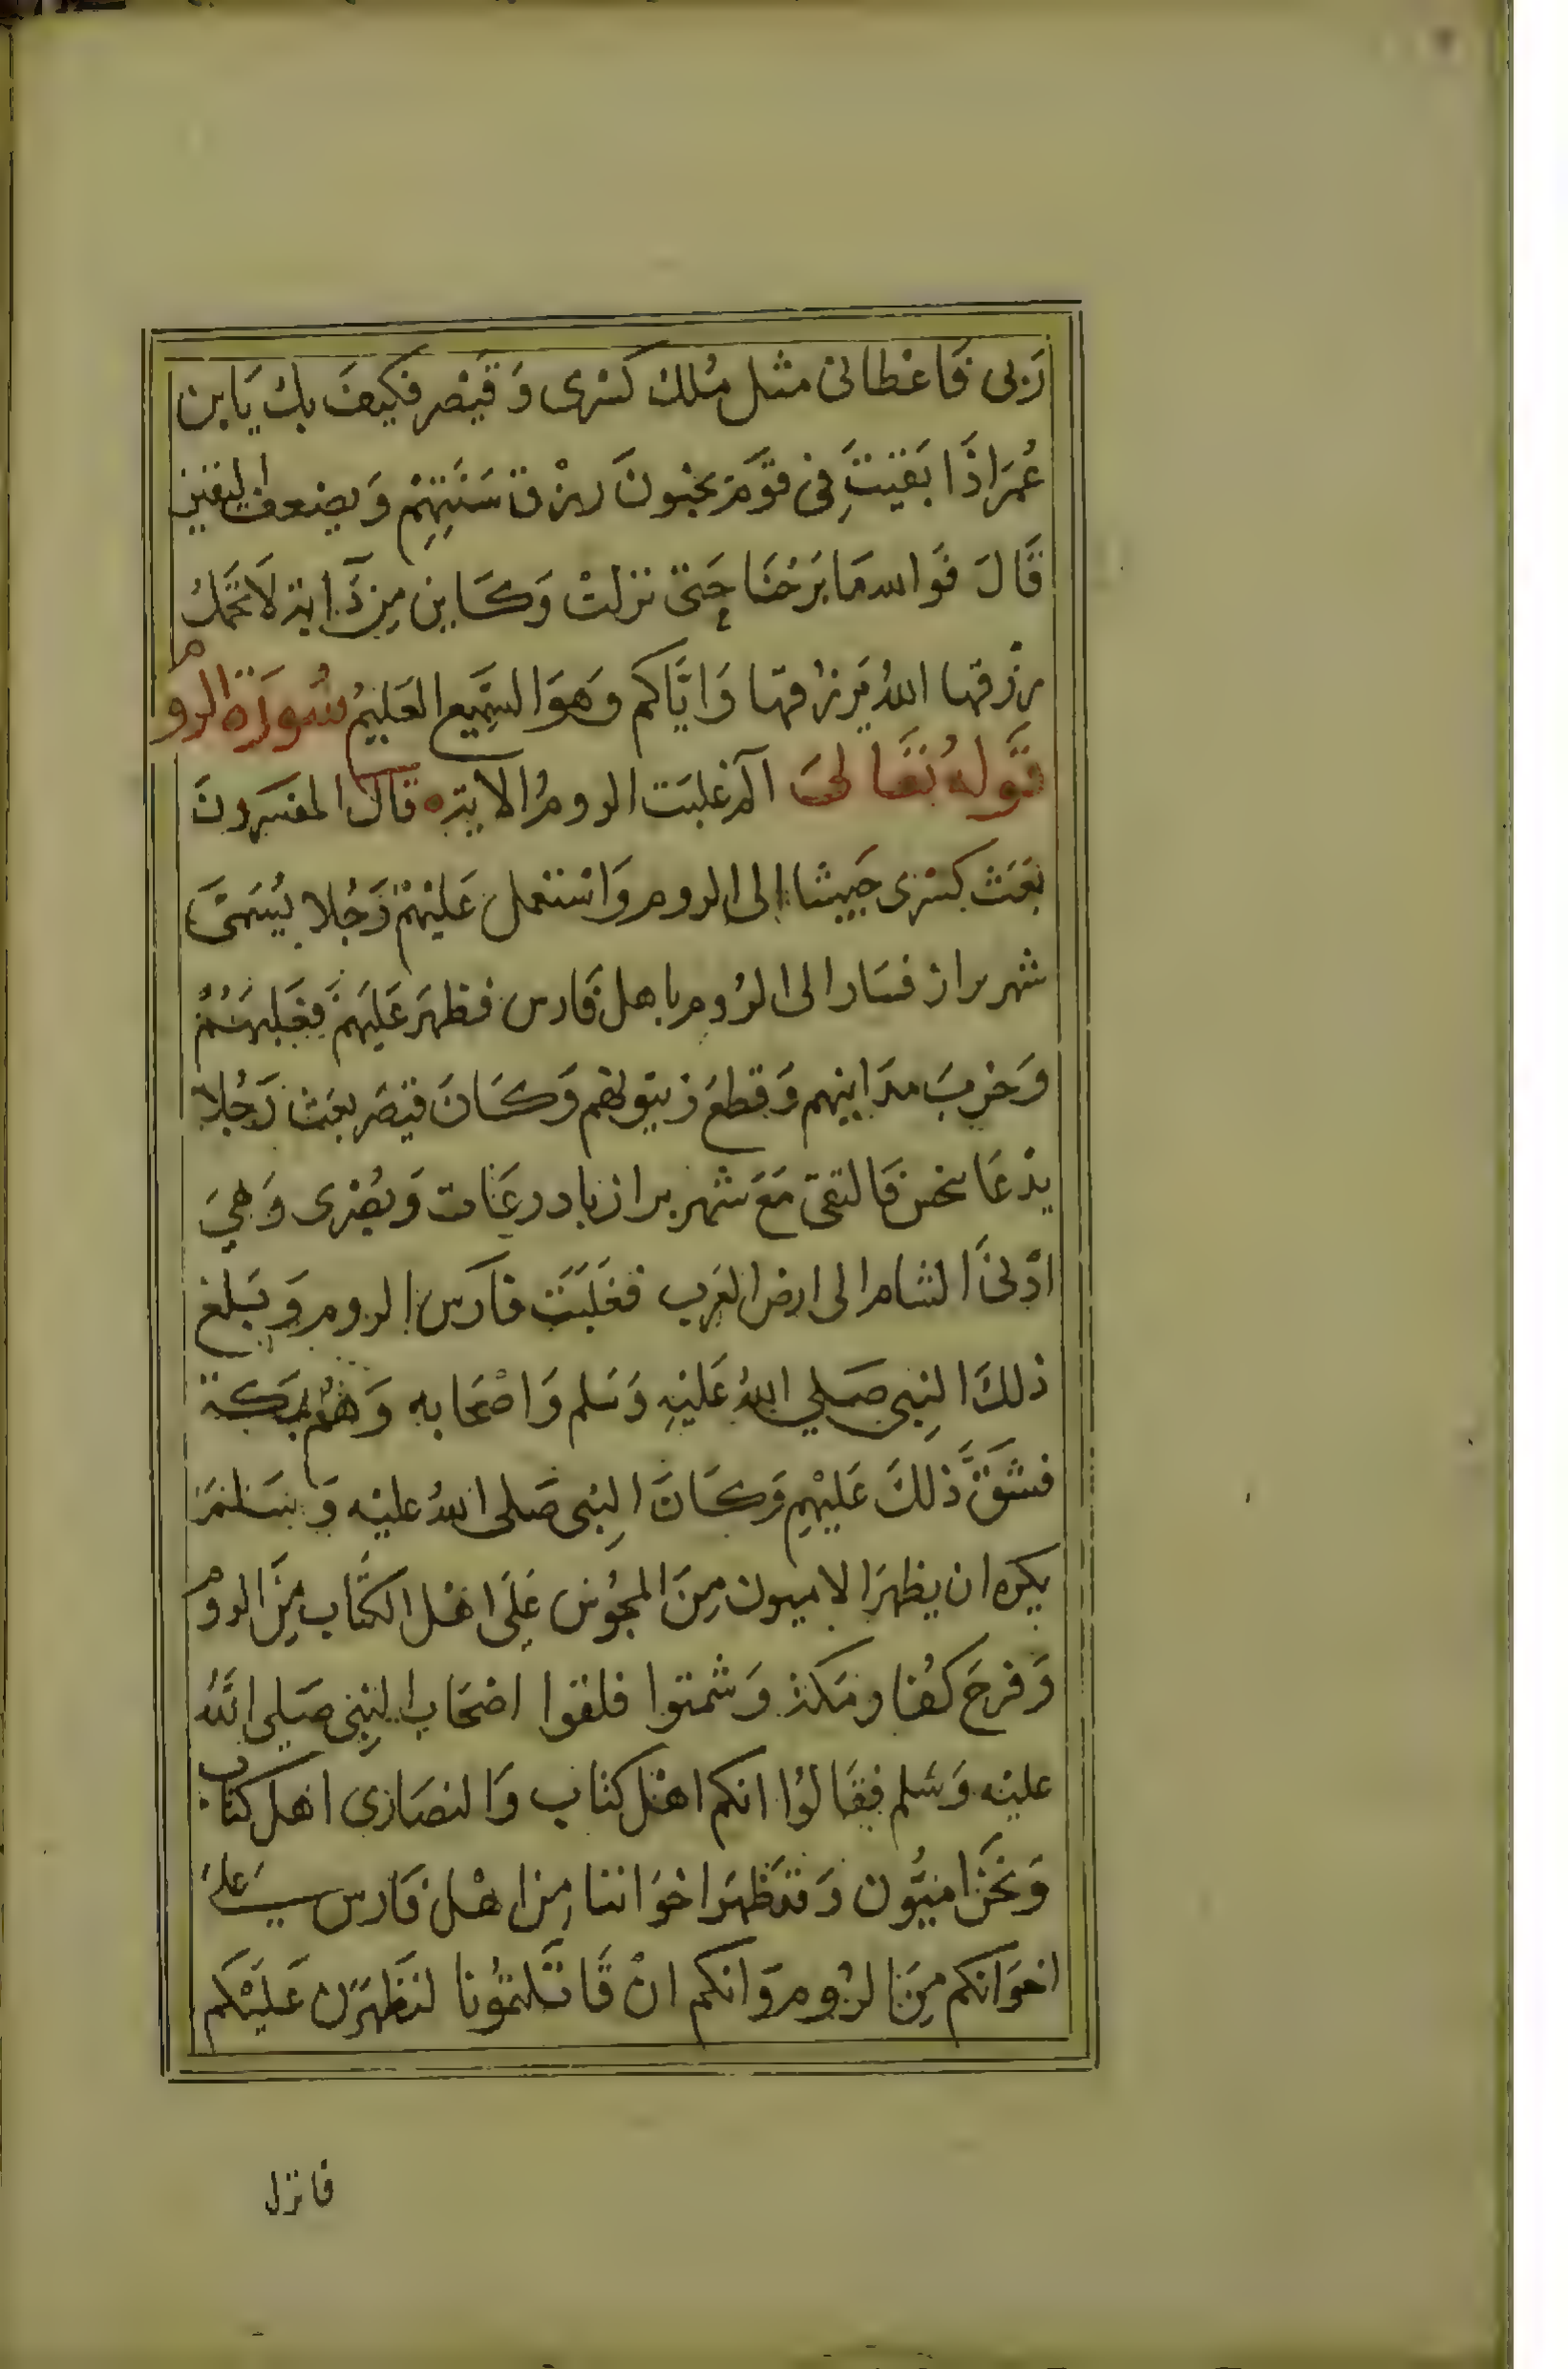 رَبى فَاعْطانى مثل مُلك كسْرى وَ قَيْصر فكيفَ بك يَابن
عُمَرَ اذَا بَقيتَ فِى قَوْمَ يخبون رزْق سَنَتِهِمْ وَيضعف اليقين
قَالَ فَوالله مَا بَرَحْنَا حَتىَّ نزلتْ وَكَاين مِن دَابة لَا تَحْمل
رِزْقها اللهُ يَرزُقها وَايَّاكم وَهوَ السَّمِيع العَليمُ سُورَة الروم
قَولهُ تَعَالىَ آلم غلبَت الرومُ الاية قال المفسرونَ
بَعَث كسْرى جَيشا الى الروم وَاسْتعمل عَليْهمْ رَجُلا يُسَمىَّ
شهربراز فسَار الى الرُوم باهل فَارس فظهَر عَليَهمْ فغَلبَهُمُ
وَخربَ مدَاينهم وَقطعَ زيتونهم وَكَانَ قيصَر بعَث رَجُلا
يدْعَا يحنس فَالتقى مَعَ شهربراز بادرعَات وَبُصْرى وَهيَ
ادْنىَ الشام الى ارض العَرب فغَلَبَت فَارَس الروم وَبَلغ
ذلكَ النِبى صَلي اللهُ عَليْهِ وَسَلم وَاصْحَابه وَهُم بمَكة
فشَقَّ ذلكَ عَليْهِم وَكَانَ النِبى صَلى اللهُ عليْه وَسَلمَ
يكره ان يظهرَ الاميون مِنَ المجُوس عَلَى اهْل الكتَاب مِنَ الروم
وَفرحَ كفار مَكة وَشمتوا فلقوا اصْحَاب النِبى صَلى اللهُ
عليْه وَسَلم فقَالوُا انكم اهْل كتاب وَالنصَارى اهل كتاب
وَنحْن اميّون وَقد ظهرَ اخوَاننا مِن اهْل فَارس عَلى
اخوَانكم مِنَ الرُوم وَانكم انْ قَاتَلتمُونا لنَظهَرَن عَليَكم
فانزل